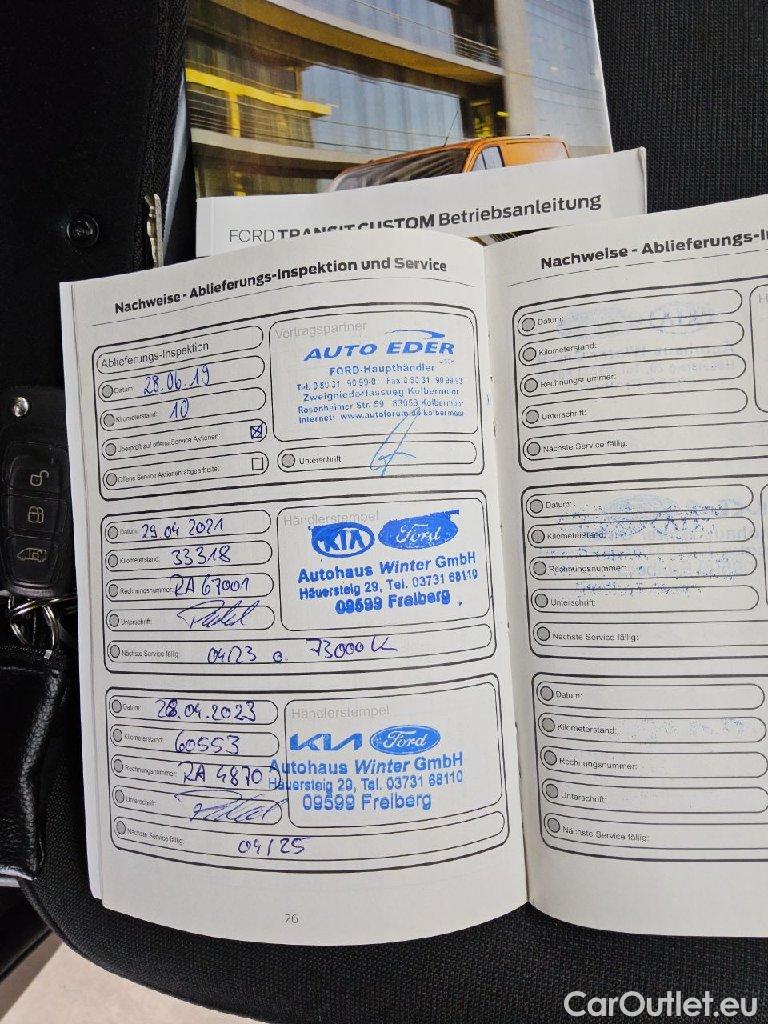 FORD TRANSIT CUSTOM Betriebsanleitung
Nachweise - Ablieferungs-Inspektion und Service
Ablieferungs-Inspektion
Datum: 28.06.19
Kilometerstand: 10
Überprüft auf offene Service Aktionen:
Offene Service Aktionen abgearbeitet:
Vertragspartner
AUTO EDER
FORD-Haupthändler
Zweigniederlassung Kolbermoor
Rosenheimer Str. 59 83059 Kolbermoor
Internet: www.autoforum.de/kolbermoor
Unterschrift
Datum: 29.04.2021
Kilometerstand: 33318
Rechnungsnummer: RA 67001
Unterschrift:
Nächste Service fällig: 04/23 o. 73000 K
Händlerstempel
KIA Ford
Autohaus Winter GmbH
Häuersteig 29, Tel. 03731 68110
09599 Freiberg
Datum: 28.04.2023
Kilometerstand: 60553
Rechnungsnummer: RA 4870
Unterschrift:
Nächste Service fällig: 04/25
Händlerstempel
KIA Ford
Autohaus Winter GmbH
Häuersteig 29, Tel. 03731 68110
09599 Freiberg
26
Nachweise - Ablieferungs-
Datum:
Kilometerstand:
Rechnungsnummer:
Unterschrift:
Nächste Service fällig:
Datum:
Kilometerstand:
Rechnungsnummer:
Unterschrift:
Nächste Service fällig:
Datum:
Kilometerstand:
Rechnungsnummer:
Unterschrift:
Nächste Service fällig:
CarOutlet.eu